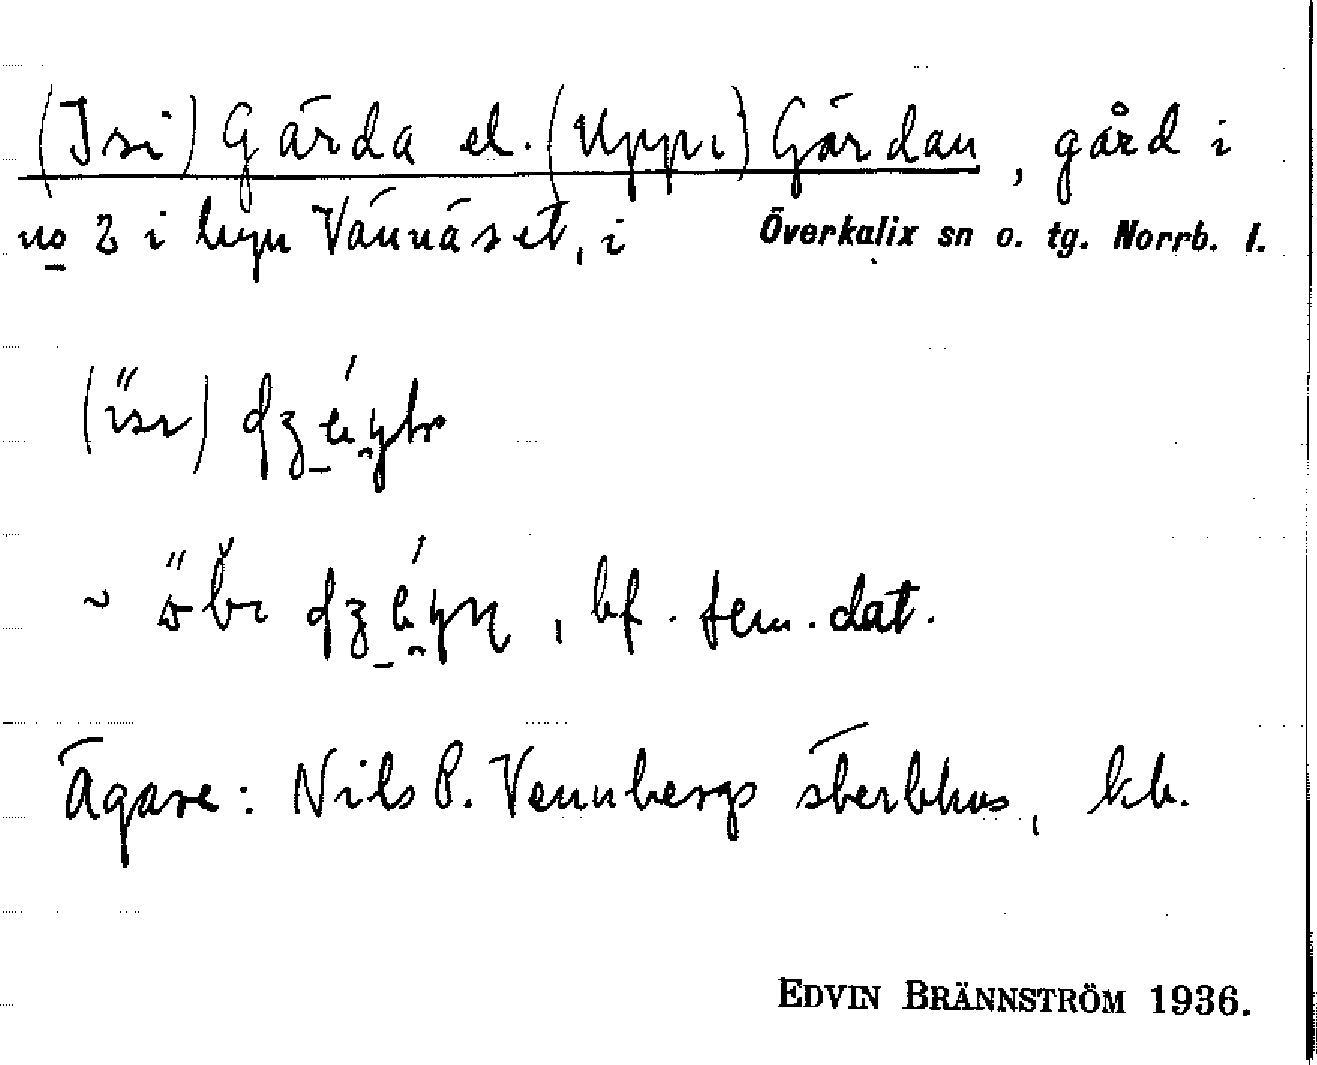 (Isi) Gärda el. (Uppi) Gärdan, gård i
no 2 i byn Vännäset, i Överkalix sn o. tg. Norrb. l.
~ , bf. fem. dat.
Ägare: Nils P. Vennbergs sterbhus, bb.
EDVIN BRÄNNSTRÖM 1936.